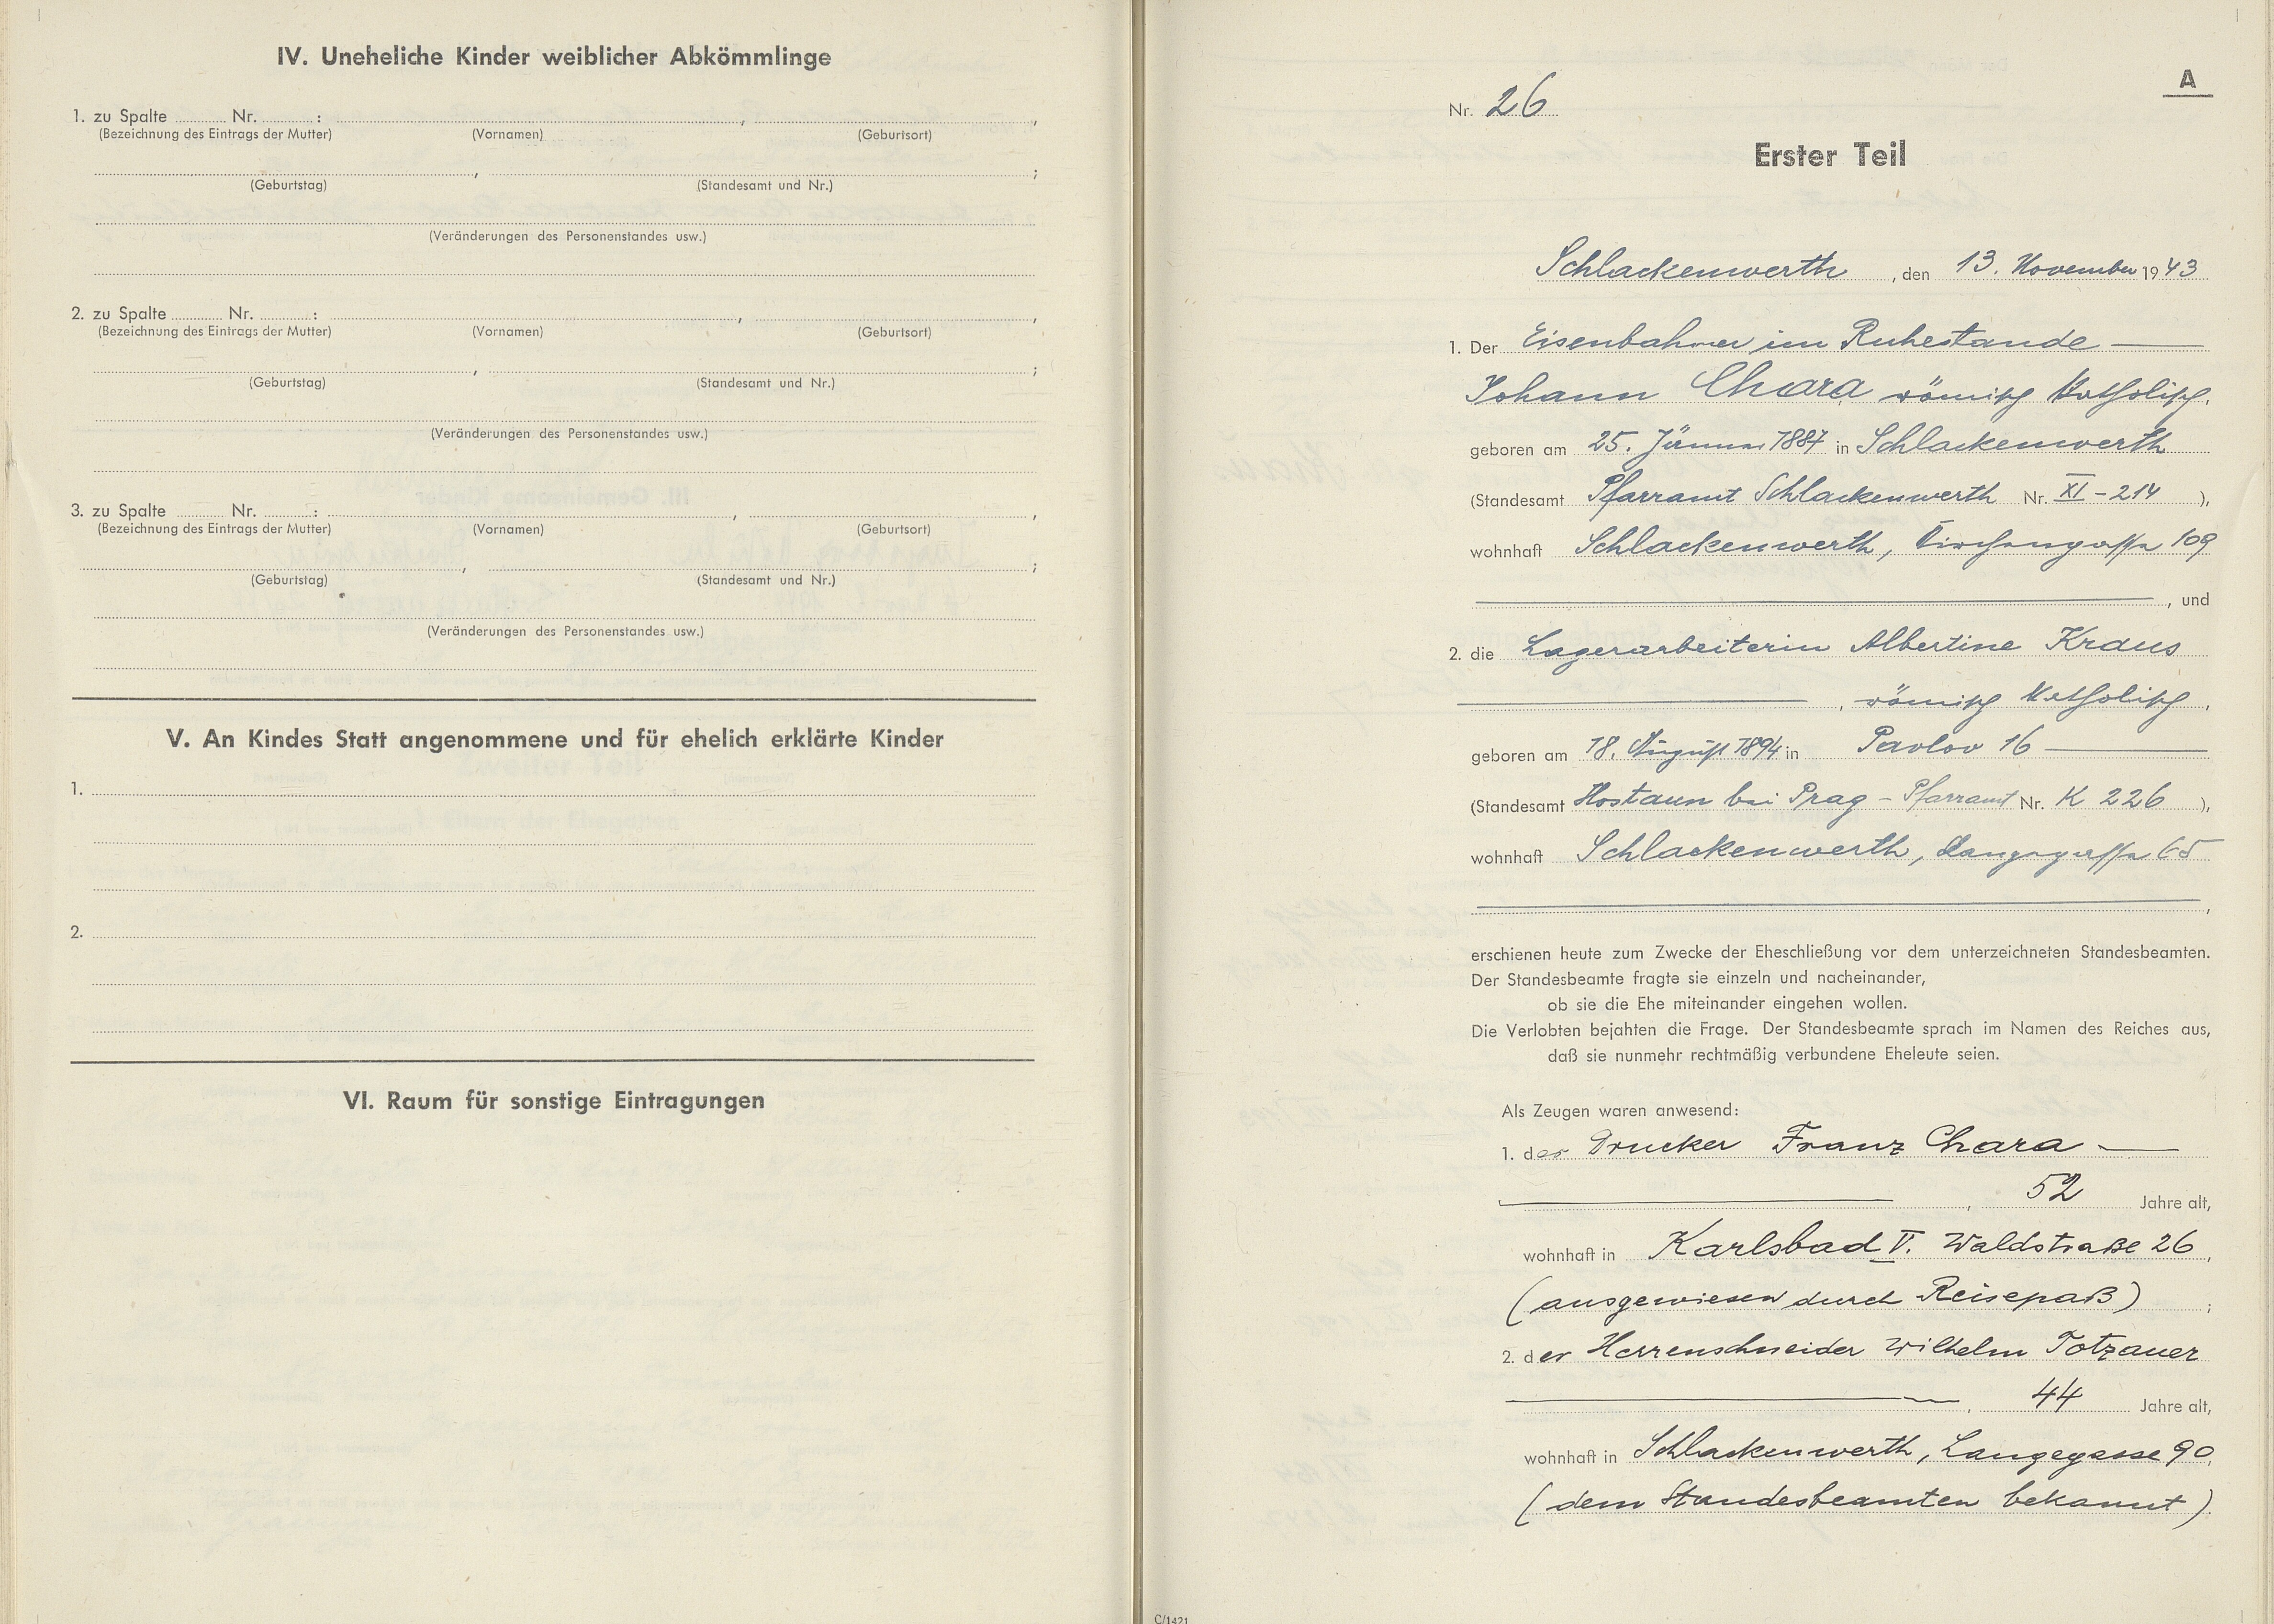 IV. Uneheliche Kinder weiblicher Abkömmlinge
1. zu Spalte ......... Nr. ......... : ........., .........,
(Bezeichnung des Eintrags der Mutter) (Vornamen) (Geburtsort)
........., .........;
(Geburtstag) (Standesamt und Nr.)
(Veränderungen des Personenstandes usw.)
2. zu Spalte ......... Nr. ......... : ........., .........,
(Bezeichnung des Eintrags der Mutter) (Vornamen) (Geburtsort)
........., .........;
(Geburtstag) (Standesamt und Nr.)
(Veränderungen des Personenstandes usw.)
3. zu Spalte ......... Nr. ......... : ........., .........,
(Bezeichnung des Eintrags der Mutter) (Vornamen) (Geburtsort)
........., .........;
(Geburtstag) (Standesamt und Nr.)
(Veränderungen des Personenstandes usw.)
V. An Kindes Statt angenommene und für ehelich erklärte Kinder
1.
2.
VI. Raum für sonstige Eintragungen
A
Nr. 26
Erster Teil
Schlackenwerth, den 13. November 1943
1. Der Eisenbahner im Ruhestande
Johann Chara römisch katholisch,
geboren am 25. Jänner 1887 in Schlackenwerth
(Standesamt Pfarramt Schlackenwerth Nr. XI - 214),
wohnhaft Schlackenwerth, Kirchengasse 109
, und
2. die Lagerarbeiterin Albertine Kraus
, römisch katholisch,
geboren am 18. August 1894 in Pavlov 16
(Standesamt Hostaun bei Prag - Pfarramt Nr. K 226),
wohnhaft Schlackenwerth, Langegasse 65
,
erschienen heute zum Zwecke der Eheschließung vor dem unterzeichneten Standesbeamten.
Der Standesbeamte fragte sie einzeln und nacheinander,
ob sie die Ehe miteinander eingehen wollen.
Die Verlobten bejahten die Frage. Der Standesbeamte sprach im Namen des Reiches aus,
daß sie nunmehr rechtmäßig verbundene Eheleute seien.
Als Zeugen waren anwesend:
1. der Drucker Franz Chara
, 52 Jahre alt,
wohnhaft in Karlsbad V. Waldstraße 26,
(ausgewiesen durch Reisepaß);
2. der Herrenschneider Wilhelm Totzauer
, 44 Jahre alt,
wohnhaft in Schlackenwerth, Langegasse 90,
(dem Standesbeamten bekannt).
C/1421